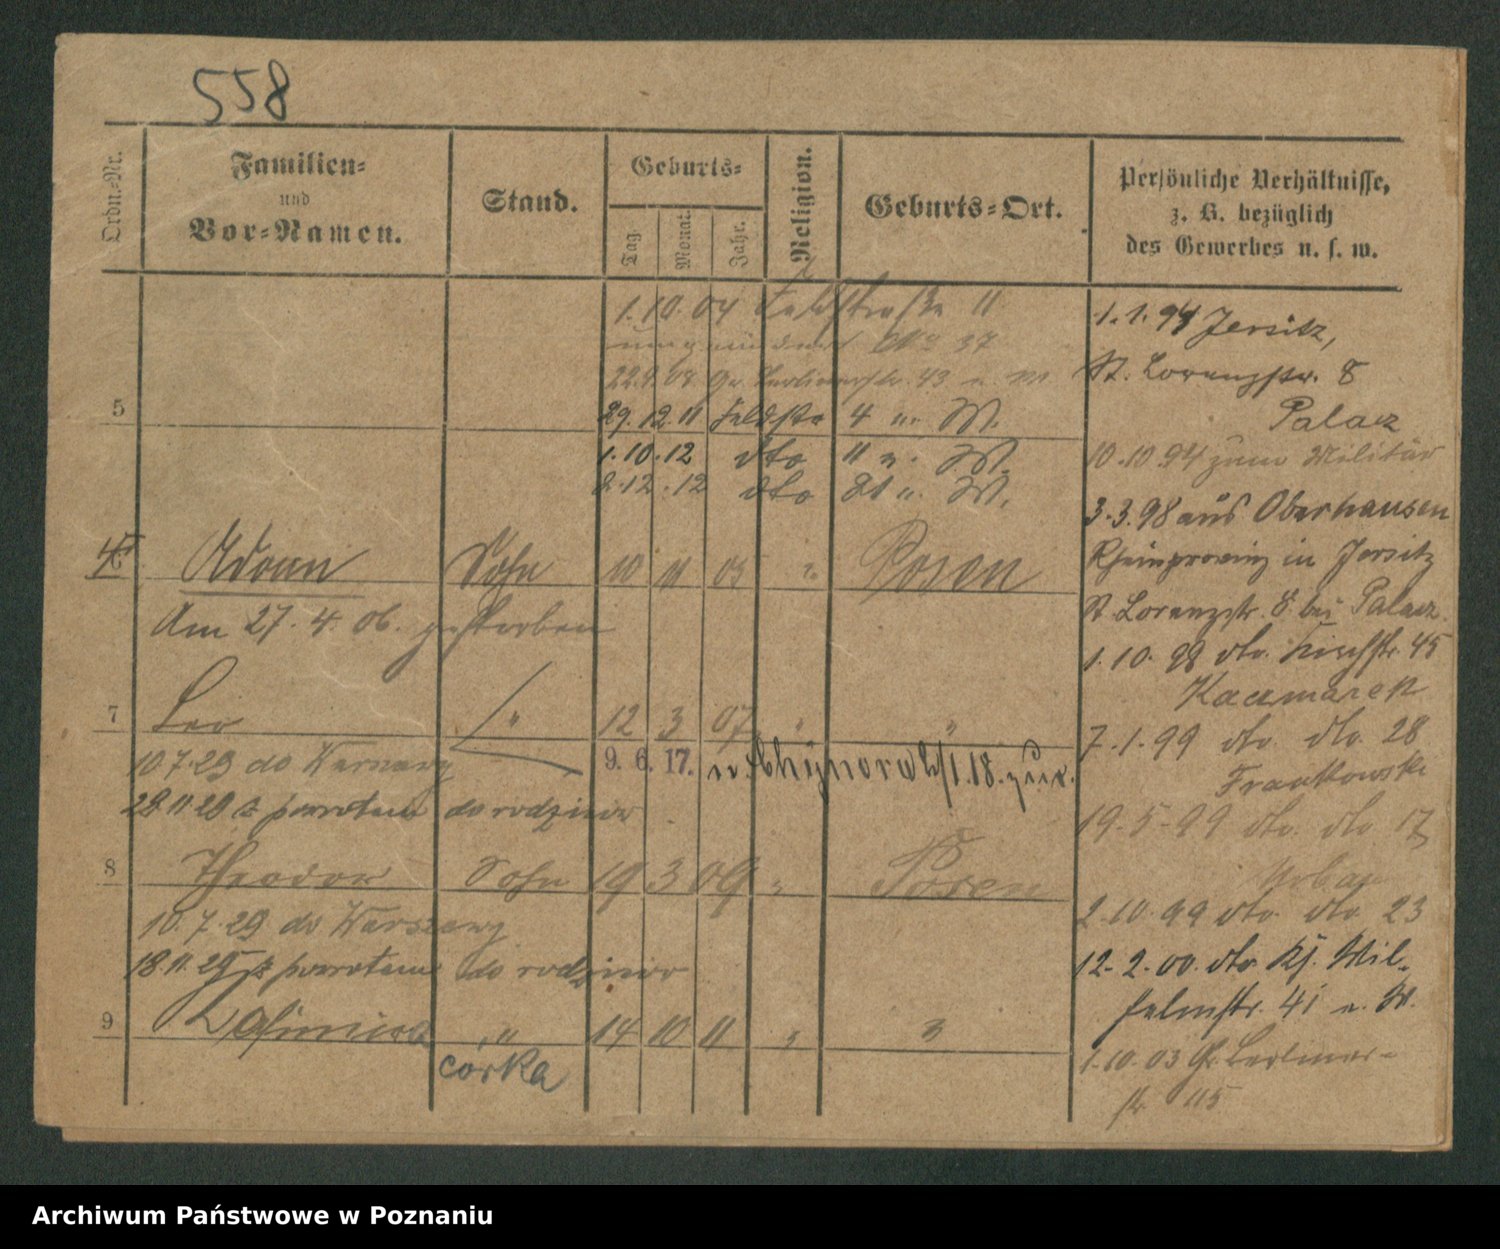 558
Ordn.-Nr.
Familien-
und
Vor-Namen.
Stand.
Geburts-
Tag.
Monat.
Jahr.
Religion.
Geburts-Ort.
Persönliche Verhältnisse,
z. B. bezüglich
des Gewerbes u. s. w.
1. 10. 04 Feldstraße 11
No 37
22.4.08 Gr. Berlinerstr. 43 u. W
5
29. 12. 11 Feldstr 4 u. W.
1. 10. 12 dto 11 u. W.
2. 12. 12 dto 21 u. W.
Adam Sohn 10 11 05 " Posen
Am 27. 4. 06. gestorben
7 Leo " 12 3 07 " "
9. 6. 17. 18. zur.
10.7.29 do Warszawy
29.11.29 z powrotem do rodziców
8 Theodor Sohn 19 3 09 " Posen
10. 7. 29 do Warszawy
18.11.29 z powrotem do rodziców
9 " 14 10 11 " "
córka
1. 1. 94 Jersitz,
St. Lorenzstr. 8
Palacz
10. 10. 94 zum Militär
3. 3. 98 aus Oberhausen
Rheinprovinz in Jersitz
St. Lorenzstr. 8 bei Palacz
1. 10. 98 dto. Kirchstr. 45
Kaczmarek
7. 1. 99 dto. dto. 28
Frankowski
19. 5. 99 dto. dto. 17
Urban
2. 10. 99 dto. dto. 23
12. 2. 00. dto. Ks. Wil-
helmstr. 41 u. W.
1. 10. 03 Gr. Berliner-
str 115
Archiwum Państwowe w Poznaniu